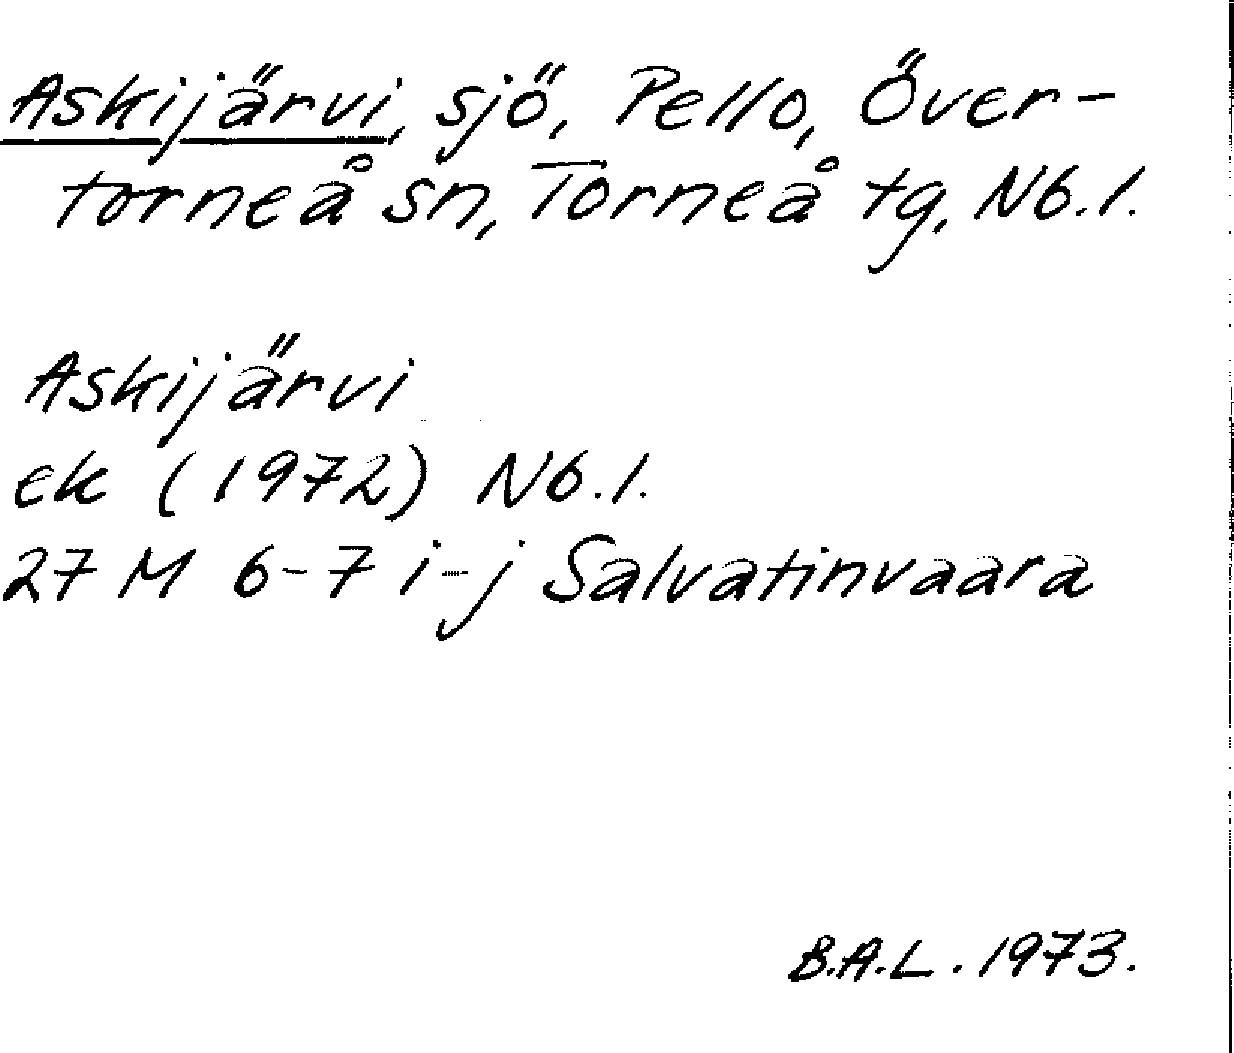 Askijärvi, sjö, Pello, Över-
torneå sn, Torneå tg, Nb.l.
Askijärvi
ek (1972) Nb.l.
27 M 6-7 i-j Salvatinvaara
B.A.L. 1973.